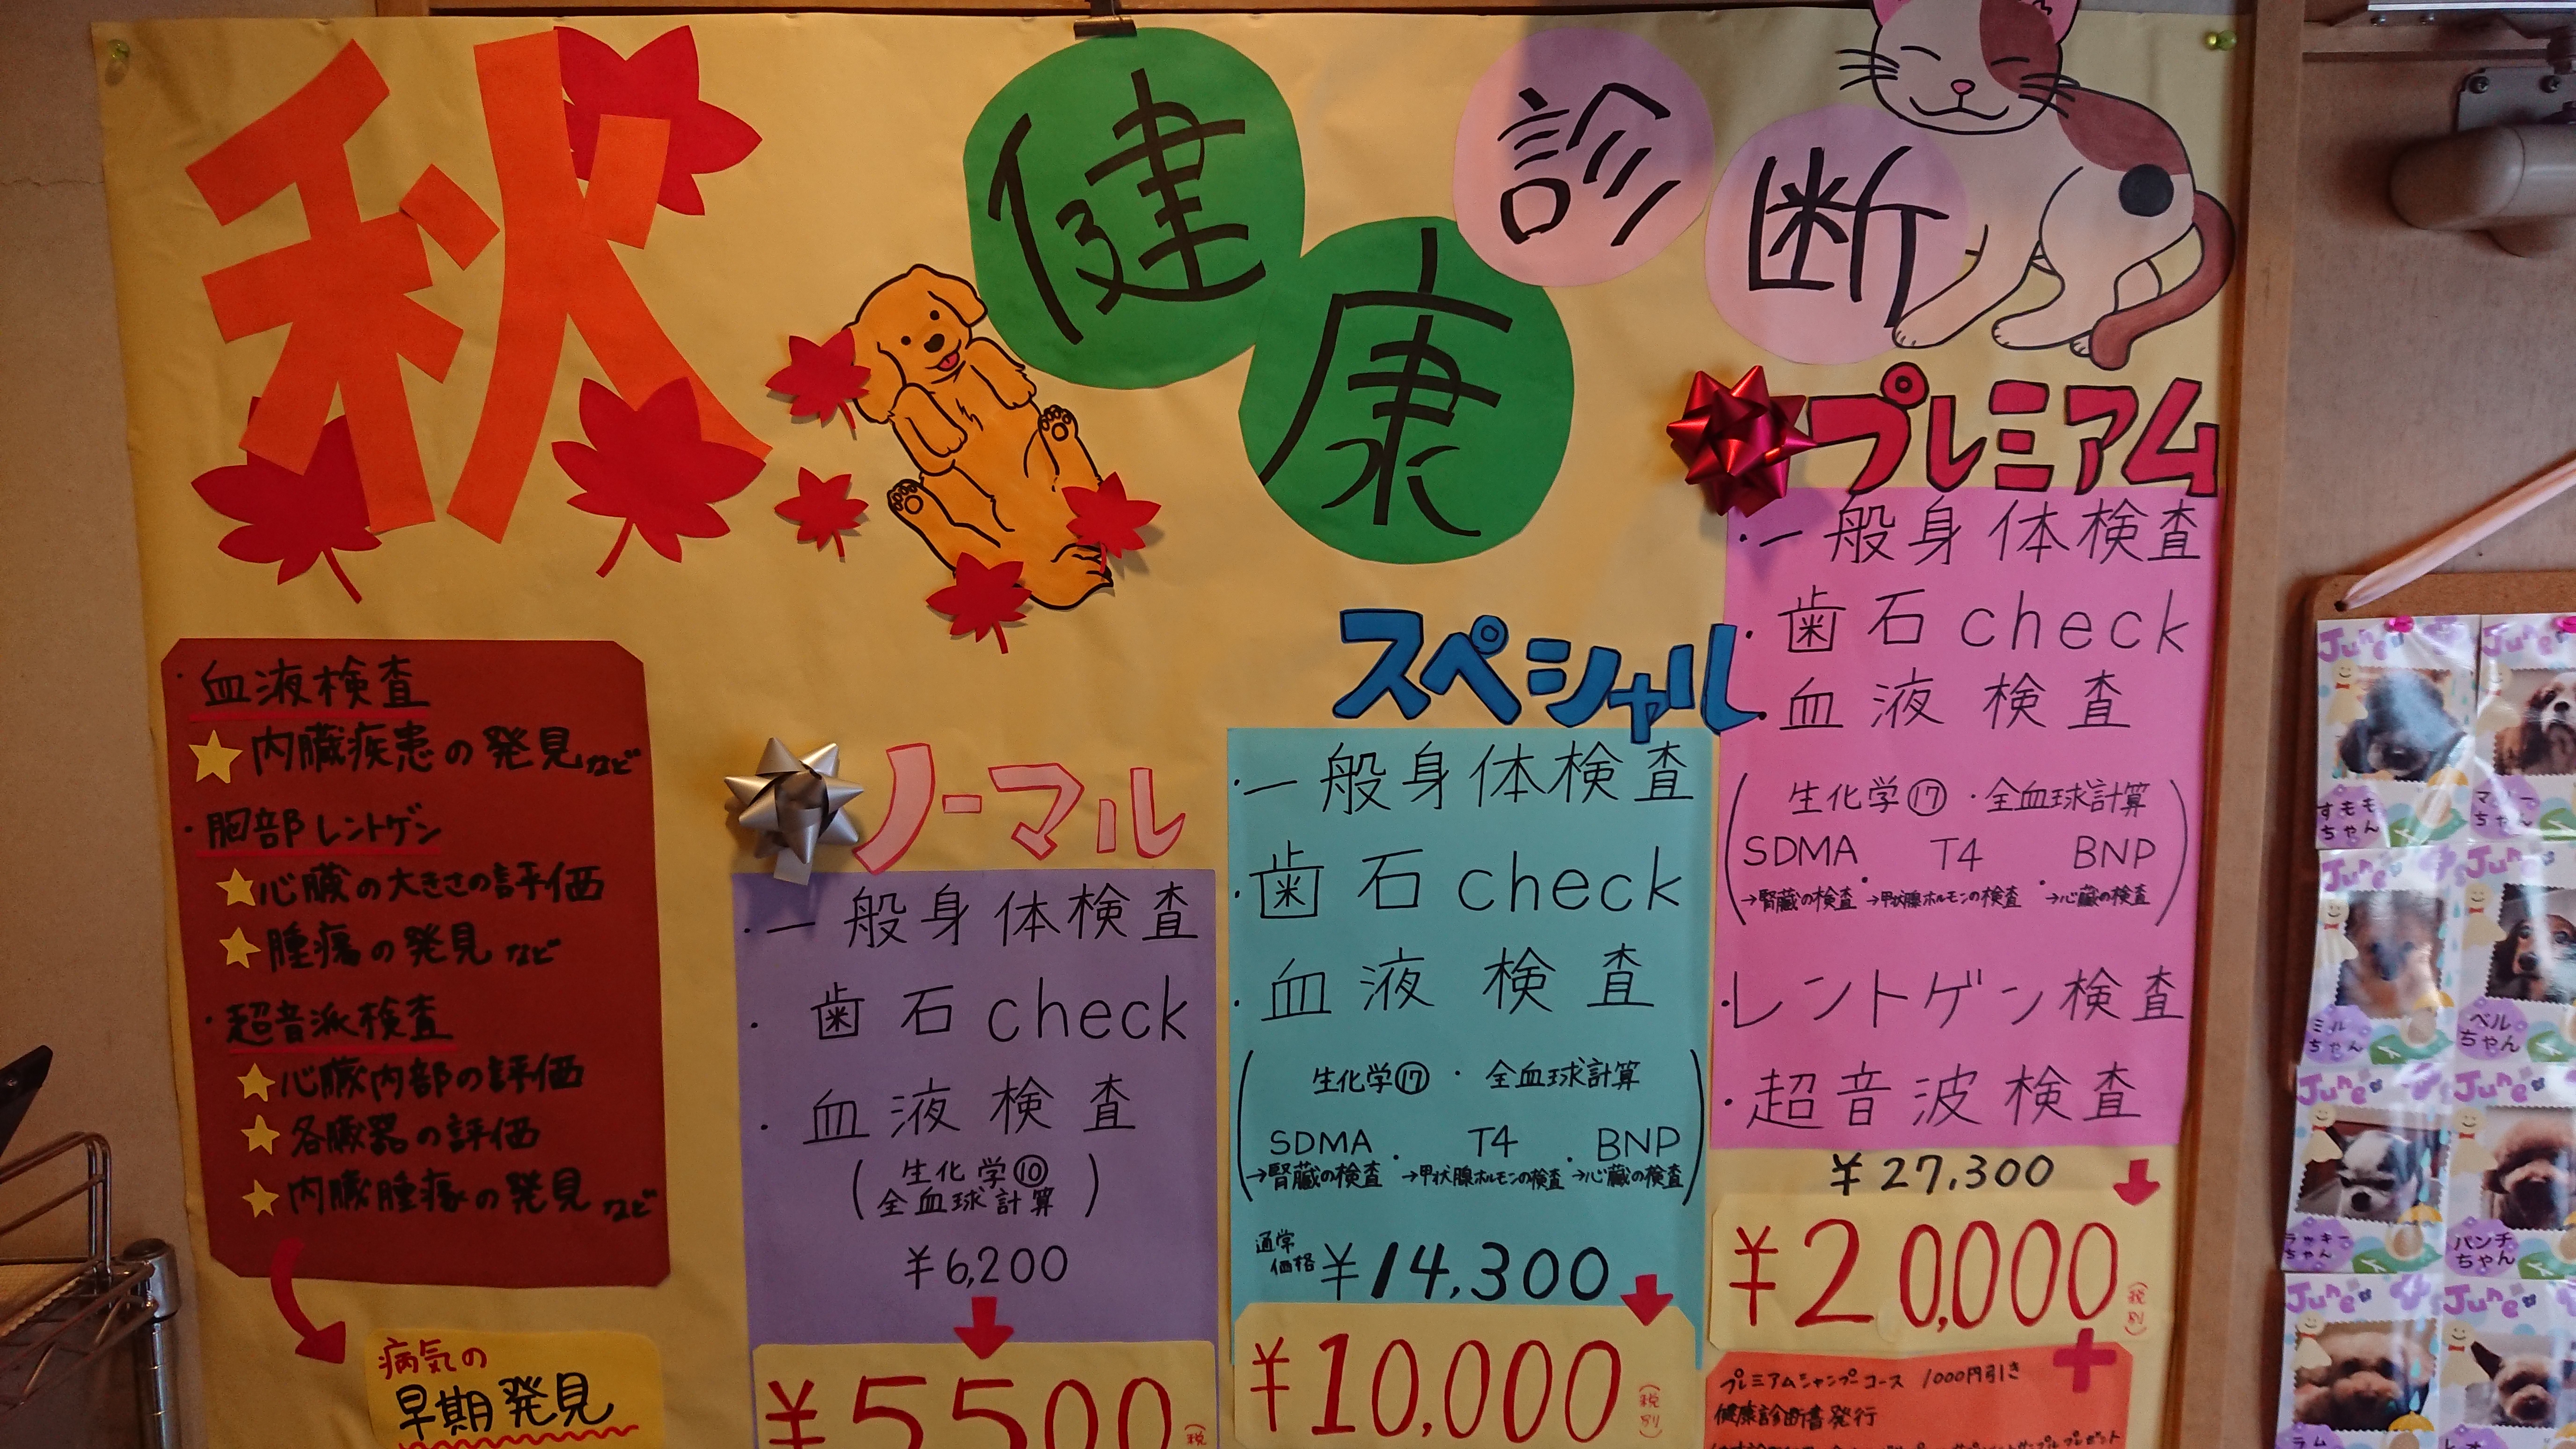 秋
健康診断
・血液検査
内臓疾患の発見など
・胸部レントゲン
心臓の大きさの評価
腫瘍の発見など
・超音派検査
心臓内部の評価
各臓器の評価
内臓腫瘍の発見など
病気の
早期発見
ノーマル
・一般身体検査
・歯石check
・血液検査
(生化学⑩
全血球計算)
¥6,200
¥5500
(税
スペシャル
・一般身体検査
・歯石check
・血液検査
(生化学⑰・全血球計算
SDMA・T4・BNP
→腎臓の検査 →甲状腺ホルモンの検査 →心臓の検査)
通常価格 ¥14,300
¥10,000
(税別)
プレミアム
・一般身体検査
・歯石check
・血液検査
(生化学⑰・全血球計算
SDMA・T4・BNP
→腎臓の検査 →甲状腺ホルモンの検査 →心臓の検査)
・レントゲン検査
・超音波検査
¥27,300
¥20,000
(税別)
+
プレミアムシャンプーコース 1000円引き
健康診断書発行
June
June
すもも
ちゃん
ちゃん
June
June
ミル
ちゃん
ベル
ちゃん
June
June
ラッキー
ちゃん
パンチ
ちゃん
June
June
ラム